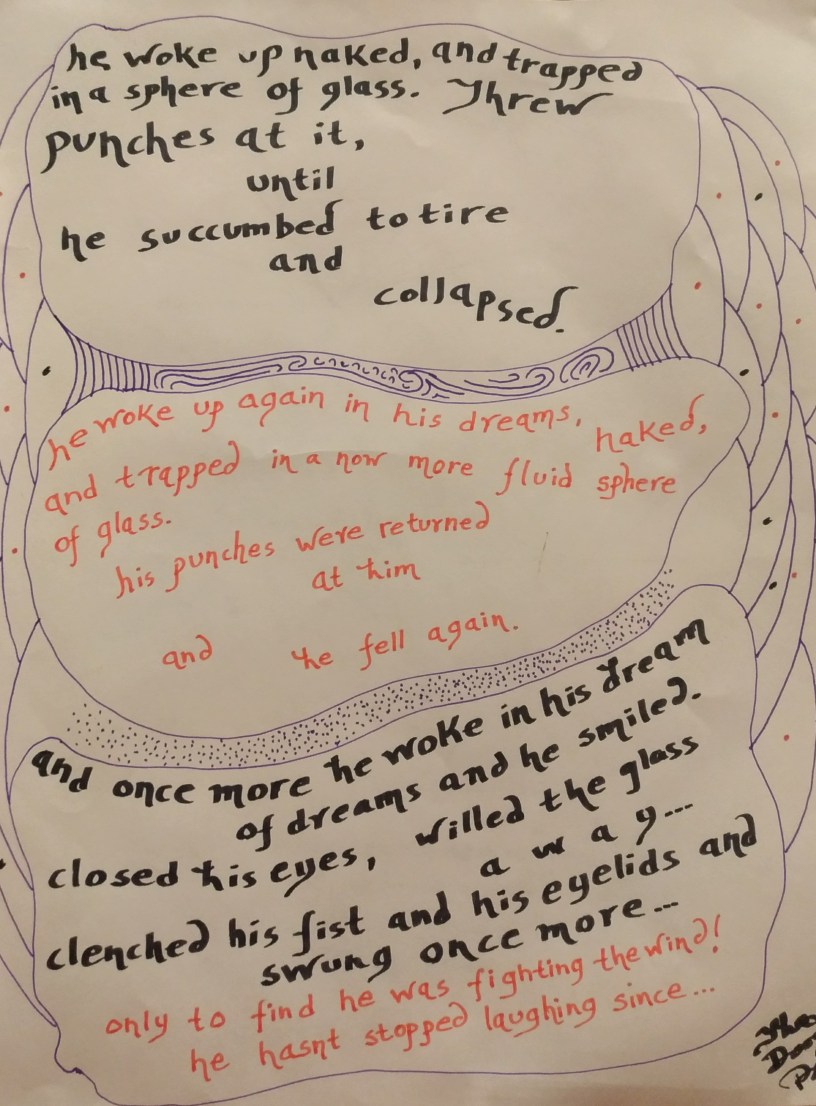 he woke up naked, and trapped
in a sphere of glass. Threw
punches at it,
until
he succumbed to tire
and
collapsed.
he woke up again in his dreams, naked,
and trapped in a now more fluid sphere
of glass.
his punches were returned
at him
and he fell again.
and once more he woke in his dream
of dreams and he smiled.
closed his eyes, willed the glass
a w a y...
clenched his fist and his eyelids and
swung once more...
only to find he was fighting the wind!
he hasnt stopped laughing since...